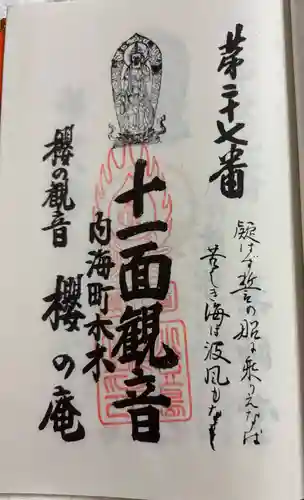 第二十七番
疑はず誓の船に乗りえなば
苦しき海は波風もなし
十一面観音
内海町水木
櫻の観音 櫻の庵